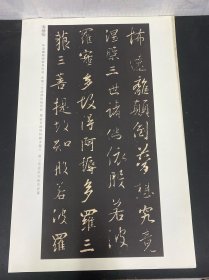 怖遠離顛倒夢想究竟
涅槃三世諸佛依般若波
羅蜜多故得阿耨多羅三
藐三菩提故知般若波羅